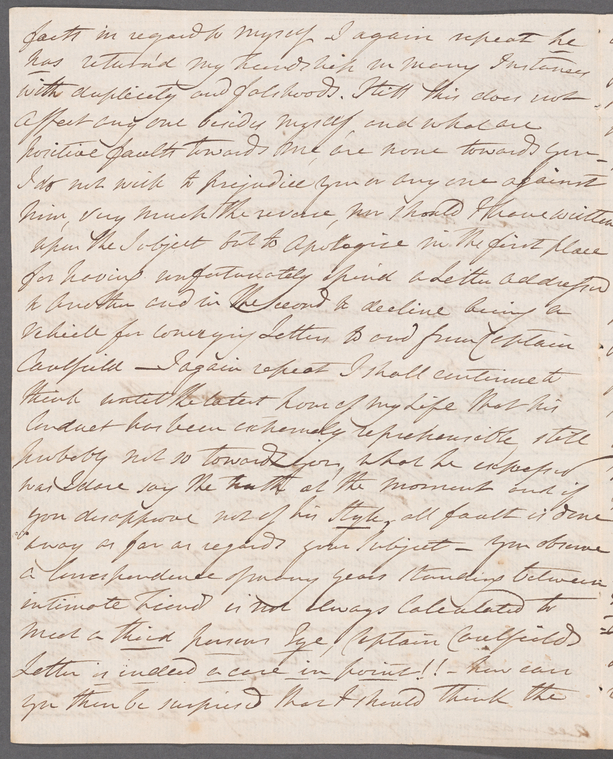 faith in regard to myself I again repeat he
has return'd my friendship in many Instances
with duplicity and falshoods. Still this does not
affect any one besides myself, and what are
positive faults towards me, are none towards you -
I do not wish to prejudice you or any one against
him, very much the reverse, nor should I have written
upon the Subject but to Apologise in the first place
for having unfortunately open'd a Letter addressed
to another and in the second to decline being a
Vehicle for conveying Letters to and from Captain
Caulfield - I again repeat I shall continue to
think until the latest hour of my Life that his
Conduct has been extremely reprehensible still
probably not so towards you, what he expressed
was I dare say the truth at the moment and if
you disapprove not of his Style, all fault is done
away as far as regards your Subject - You observe
a Correspondence of many years standing between
intimate Friend is not always Calculated to
meet a third persons Eye, Captain Caulfields
Letter is indeed a case in point!! - how can
you then be surprised that I should think the